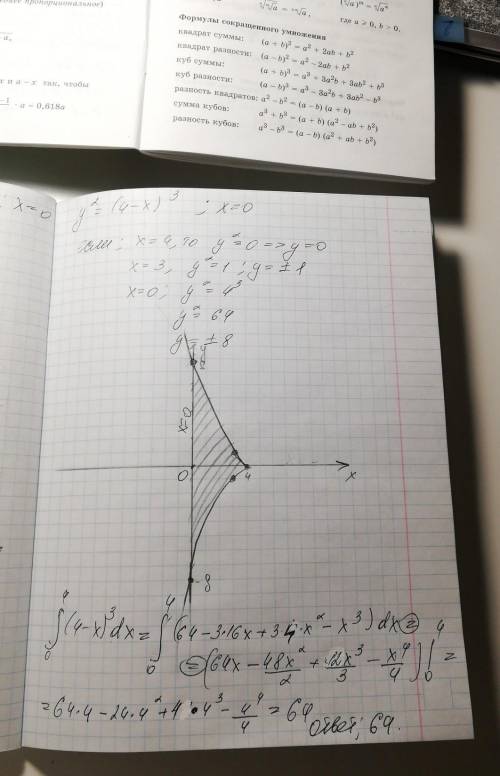 (более пропорциональное)
где a ≥ 0, b > 0.
x и a − x так, чтобы
· a = 0,618a
Формулы сокращенного умножения
квадрат суммы: (a + b)² = a² + 2ab + b²
квадрат разности: (a − b)² = a² − 2ab + b²
куб суммы: (a + b)³ = a³ + 3a²b + 3ab² + b³
куб разности: (a − b)³ = a³ − 3a²b + 3ab² − b³
разность квадратов: a² − b² = (a − b) (a + b)
сумма кубов: a³ + b³ = (a + b) (a² − ab + b²)
разность кубов: a³ − b³ = (a − b) (a² + ab + b²)
; x=0
y² = (4-x)³ ; x=0
если; x=4, то y²=0 => y=0
x=3, y²=1; y=±1
x=0; y²=4³
y²=64
y=±8
y
x=0
0
4
x
-8
∫₀⁴ (4-x)³dx = ∫₀⁴ (64-3·16x+3·4·x²-x³) dx =
= (64x - 48x²/2 + 12x³/3 - x⁴/4) |₀⁴ =
= 64·4 - 24·4² + 4·4³ - 4⁴/4 = 64
Ответ; 64.